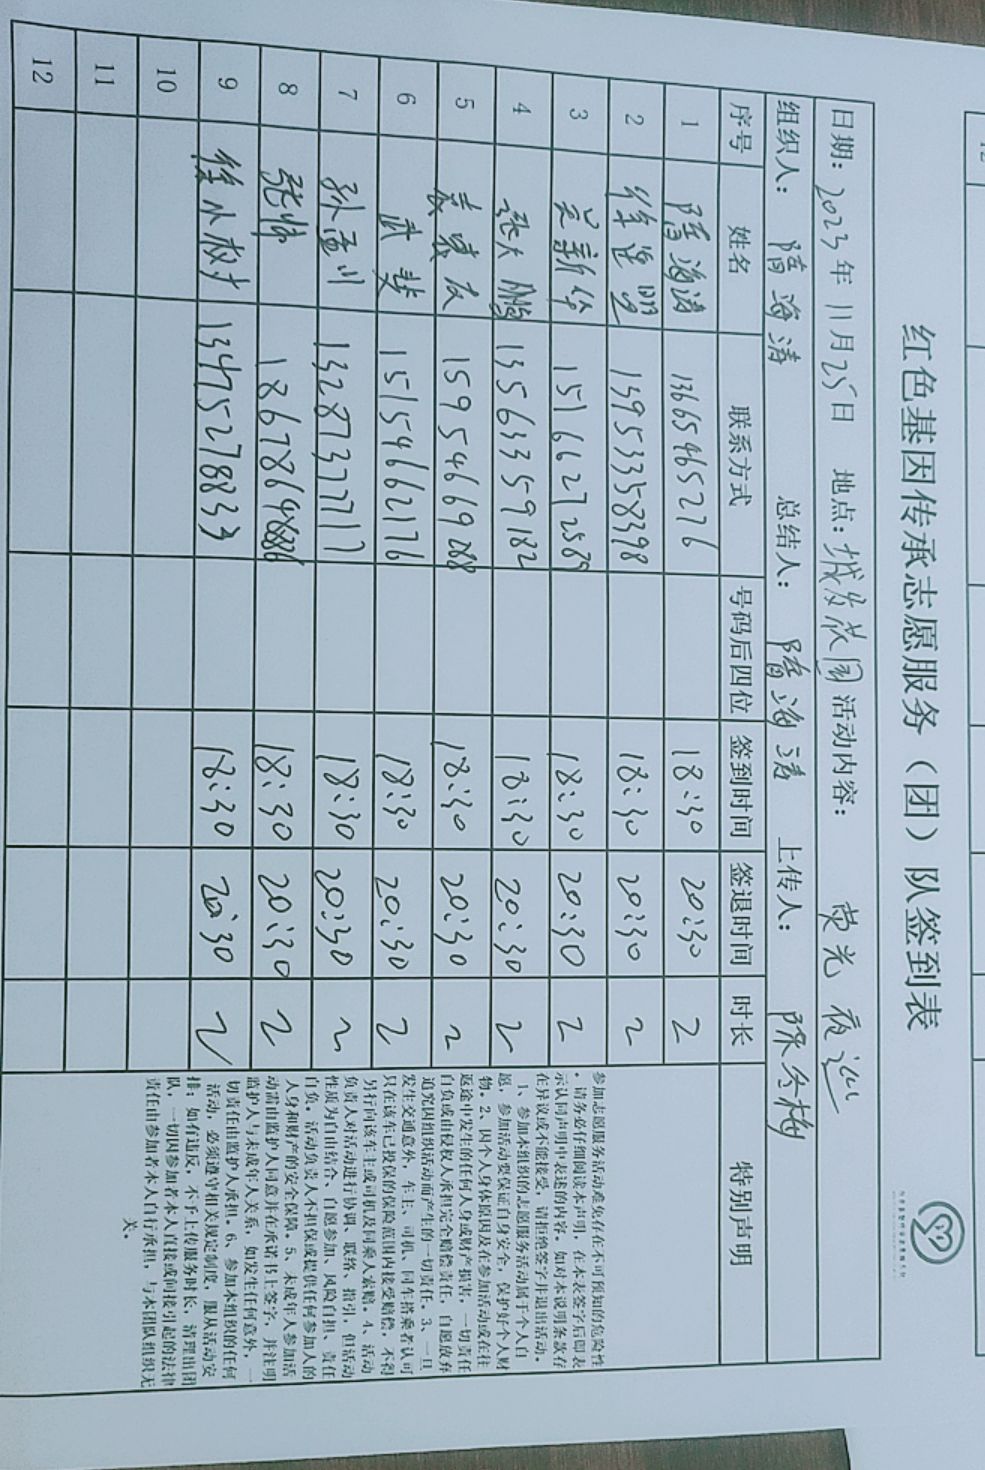 红色基因传承志愿服务（团）队签到表
日期：2023年11月25日 地点：城发花园 活动内容： 荧光夜巡
组织人：隋海涛 总结人：隋海涛 上传人：陈冬梅
序号 姓名 联系方式 号码后四位 签到时间 签退时间 时长 特别声明
1 隋海涛 13665465276 18:30 20:30 2
2 13953358398 18:30 20:30 2
3 15166272589 18:30 20:30 2
4 张大鹏 13563359182 18:30 20:30 2
5 15954669288 18:30 20:30 2
6 武斐 15154662176 18:30 20:30 2
7 孙孟川 13287377717 18:30 20:30 2
8 张帅 18:30 20:30 2
9 徐小枚 13475278833 18:30 20:30 2
10
11
12
参加志愿服务活动难免存在不可预知的危险性
，请务必仔细阅读本声明，在本表签字后即表
示认同声明中表述的内容。如对本说明条款存
在异议或不能接受，请拒绝签字并退出活动。
1、参加本组织的志愿服务活动属于个人自
愿，参加活动要保证自身安全，保护好个人财
物。2、因个人身体原因及在参加活动或在往
返途中发生的任何人身或财产损害，一切责任
自负或由侵权人承担完全赔偿责任，自愿放弃
追究因组织活动而产生的一切责任。3、一旦
发生交通意外，车主、司机、同车搭乘者认可
只在该车已投保的保险范围内接受赔偿，不得
另行向该车主或司机及同乘人索赔。4、活动
负责人对活动进行协调、联络、指引，但活动
性质为自由结合、自愿参加、风险自担、责任
自负。活动负责人不担保或提供任何参加人的
人身和财产的安全保障。5、未成年人参加活
动需由监护人同意并在承诺书上签字，并注明
监护人与未成年人关系，如发生任何意外，一
切责任由监护人承担。6、参加本组织的任何
活动，必须遵守相关规定制度，服从活动安
排；如有违反，不予上传服务时长，清理出团
队，一切因参加者本人直接或间接引起的法律
责任由参加者本人自行承担，与本团队组织无
关。
12